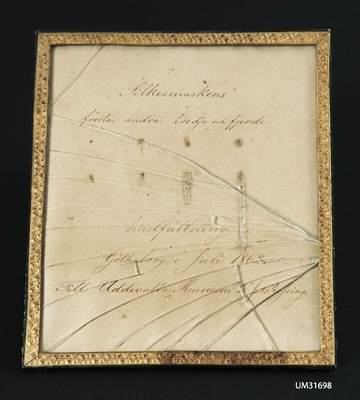 Silkesmaskens
första andra tredje o fjerde
hudfällning
Götheborg i Juli 186
Till Uddevalla Museum
UM31698